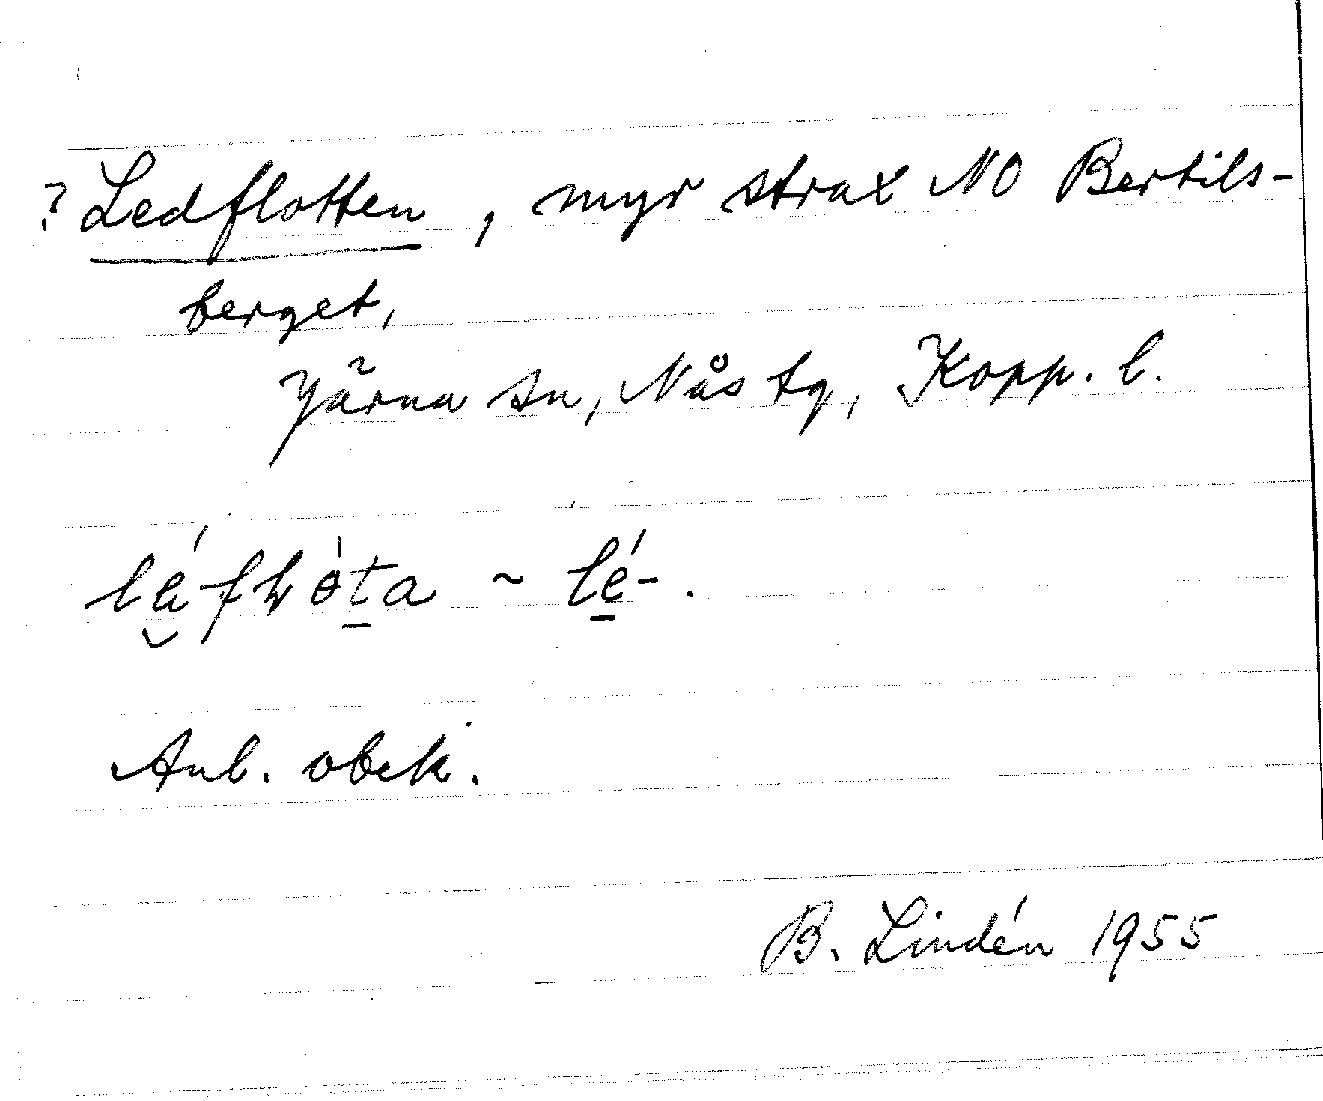 ? Ledflotten, myr strax NO Bertils-
berget,
Järna sn, Nås tg, Kopp. l.
~ lé-.
Anl. obek.
B. Lindén 1955